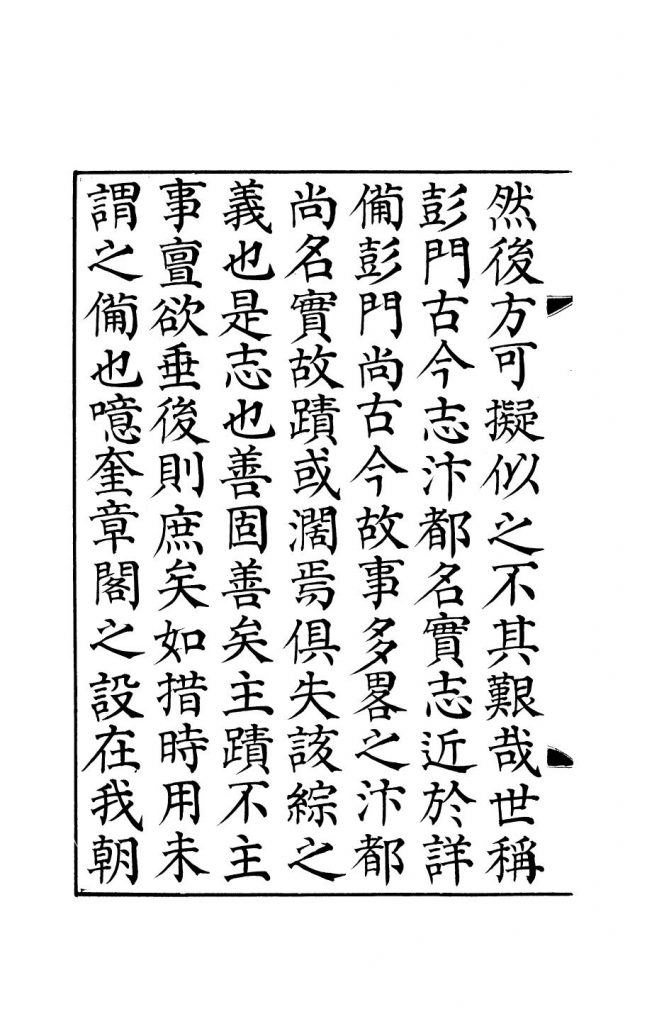 然後方可擬似之不其艱哉世稱
彭門古今志汴都名實志近於詳
備彭門尚古今故事多畧之汴都
尚名實故蹟或濶焉俱失該綜之
義也是志也善固善矣主蹟不主
事亶欲垂後則庶矣如措時用未
謂之備也噫奎章閣之設在我朝